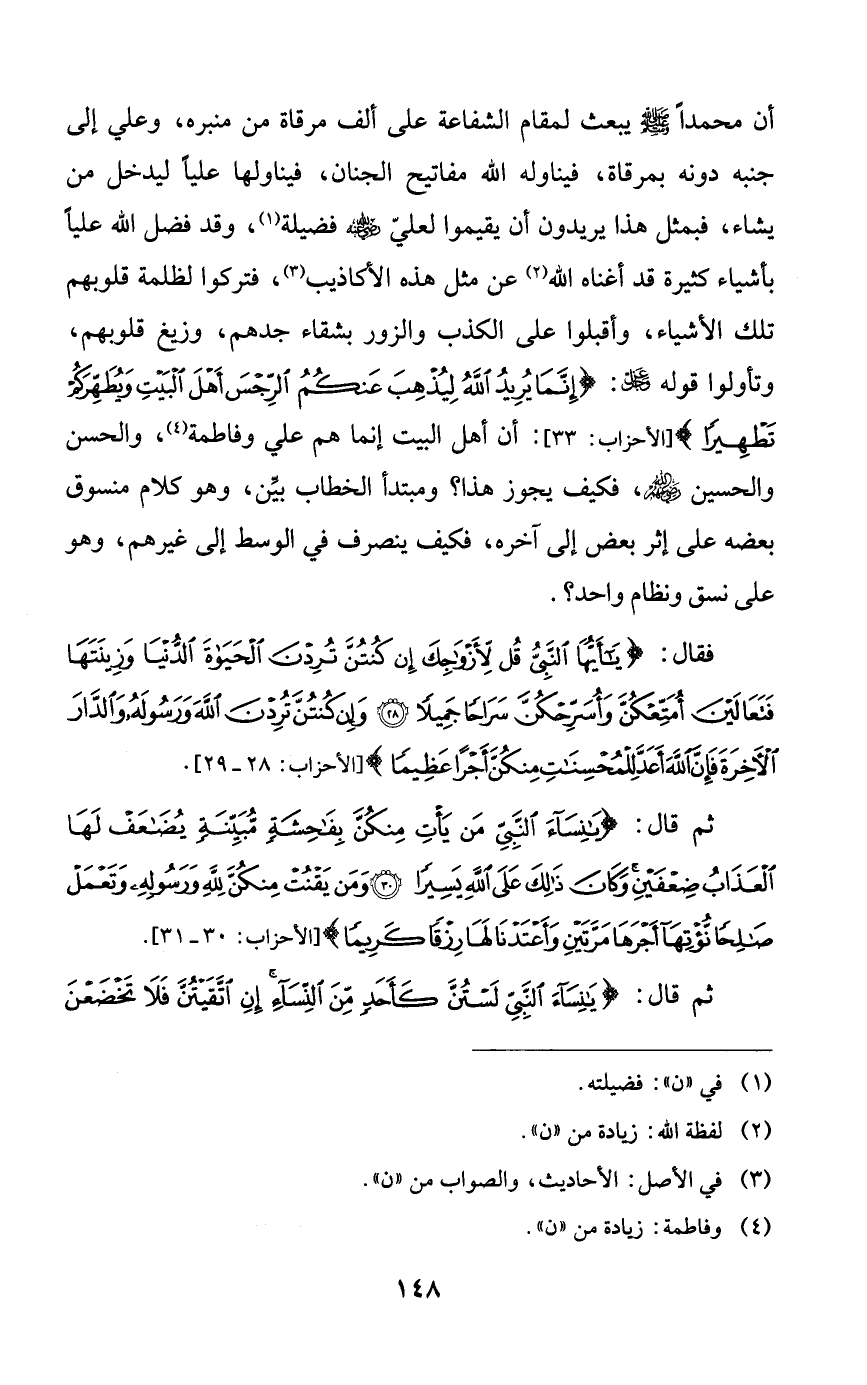 أن محمداً ﷺ يبعث لمقام الشفاعة على ألف مرقاة من منبره، وعلي إلى
جنبه دونه بمرقاة، فيناوله الله مفاتيح الجنان، فيناولها علياً ليدخل من
يشاء، فبمثل هذا يريدون أن يقيموا لعليّ رضي الله عنه فضيلة(١)، وقد فضل الله علياً
بأشياء كثيرة قد أغناه الله(٢) عن مثل هذه الأكاذيب(٣)، فتركوا لظلمة قلوبهم
تلك الأشياء، وأقبلوا على الكذب والزور بشقاء جدهم، وزيغ قلوبهم،
وتأولوا قوله : ﴿إِنَّمَا يُرِيدُ ٱللَّهُ لِيُذْهِبَ عَنكُمُ ٱلرِّجْسَ أَهْلَ ٱلْبَيْتِ وَيُطَهِّرَكُمْ
تَطْهِيرًا ﴾[الأحزاب: ٣٣]: أن أهل البيت إنما هم علي وفاطمة(٤)، والحسن
والحسين رضي الله عنهم، فكيف يجوز هذا؟ ومبتدأ الخطاب بيِّن، وهو كلام منسوق
بعضه على إثر بعض إلى آخره، فكيف ينصرف في الوسط إلى غيرهم، وهو
على نسق ونظام واحد؟.
فقال: ﴿ يَٰٓأَيُّهَا ٱلنَّبِىُّ قُل لِّأَزْوَٰجِكَ إِن كُنتُنَّ تُرِدْنَ ٱلْحَيَوٰةَ ٱلدُّنْيَا وَزِينَتَهَا
فَتَعَالَيْنَ أُمَتِّعْكُنَّ وَأُسَرِّحْكُنَّ سَرَاحًا جَمِيلًا ٢٨ وَإِن كُنتُنَّ تُرِدْنَ ٱللَّهَ وَرَسُولَهُۥ وَٱلدَّارَ
ٱلْآخِرَةَ فَإِنَّ ٱللَّهَ أَعَدَّ لِلْمُحْسِنَٰتِ مِنكُنَّ أَجْرًا عَظِيمًا ﴾[الأحزاب: ٢٨ـ٢٩].
ثم قال: ﴿يَٰنِسَآءَ ٱلنَّبِىِّ مَن يَأْتِ مِنكُنَّ بِفَٰحِشَةٍ مُّبَيِّنَةٍ يُضَٰعَفْ لَهَا
ٱلْعَذَابُ ضِعْفَيْنِ ۚ وَكَانَ ذَٰلِكَ عَلَى ٱللَّهِ يَسِيرًا ٣٠ وَمَن يَقْنُتْ مِنكُنَّ لِلَّهِ وَرَسُولِهِۦ وَتَعْمَلْ
صَٰلِحًا نُّؤْتِهَآ أَجْرَهَا مَرَّتَيْنِ وَأَعْتَدْنَا لَهَا رِزْقًا كَرِيمًا ﴾[الأحزاب: ٣٠ـ٣١].
ثم قال: ﴿ يَٰنِسَآءَ ٱلنَّبِىِّ لَسْتُنَّ كَأَحَدٍ مِّنَ ٱلنِّسَآءِ ۚ إِنِ ٱتَّقَيْتُنَّ فَلَا تَخْضَعْنَ
(١) في «ن»: فضيلته.
(٢) لفظة الله: زيادة من «ن».
(٣) في الأصل: الأحاديث، والصواب من «ن».
(٤) وفاطمة: زيادة من «ن».
١٤٨